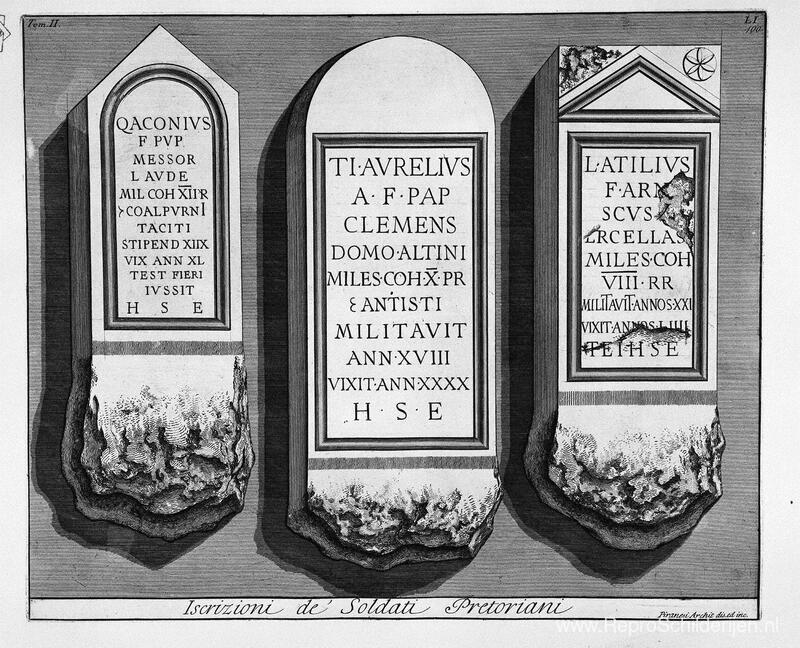 Tom. II.
LI
100.
QACONIVS
F PVP
MESSOR
LAVDE
MIL COH X̅I̅I̅ PR
COALPVRNI
TACITI
STIPEND XIIX
VIX ANN XL
TEST FIERI
IVSSIT
H S E
TI·AVRELIVS
A·F·PAP
CLEMENS
DOMO·ALTINI
MILES·COH·X̅·PR
ANTISTI
MILITAVIT
ANN·XVIII
VIXIT·ANN·XXXX
H·S·E
L·ATILIVS
F·ARN
SCVS
ERCELLAS
MILES·COH
V̅I̅I̅I̅·RR
MILITAVIT·ANNOS·XXI
VIXIT·ANNOS·LIIII
TEIHSE
Iscrizioni de' Soldati Pretoriani
Piranesi Archit. dis. ed inc.
www.ReproSchilderijen.nl